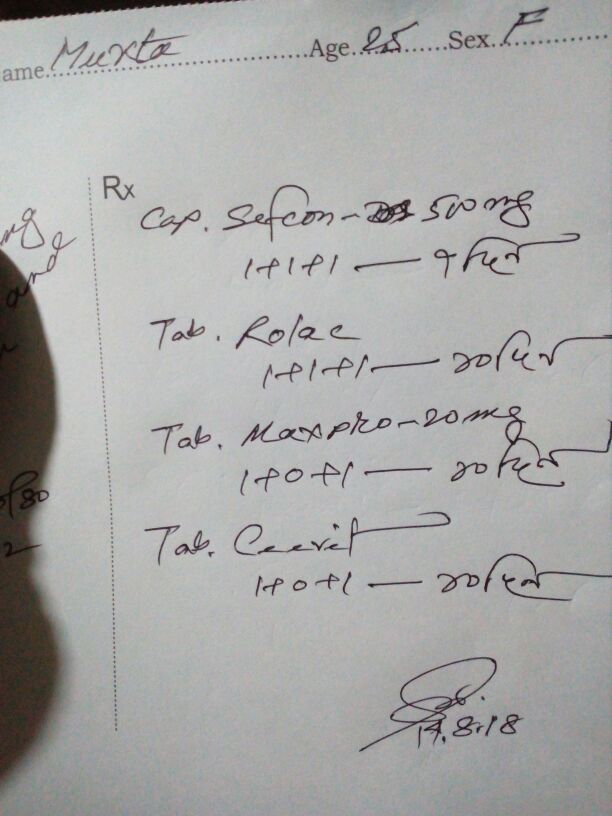 ame Muxta Age 25 Sex F
Rx
Cap. Sefcon - 500 mg
1+1+1 — ৭ দিন
Tab. Rolac
1+1+1 — ১০ দিন
Tab. Maxpro - 20 mg
1+0+1 — ১০ দিন
Tab. Ceevit
1+0+1 — ১০ দিন
14.8.18
mg
and
/80
2